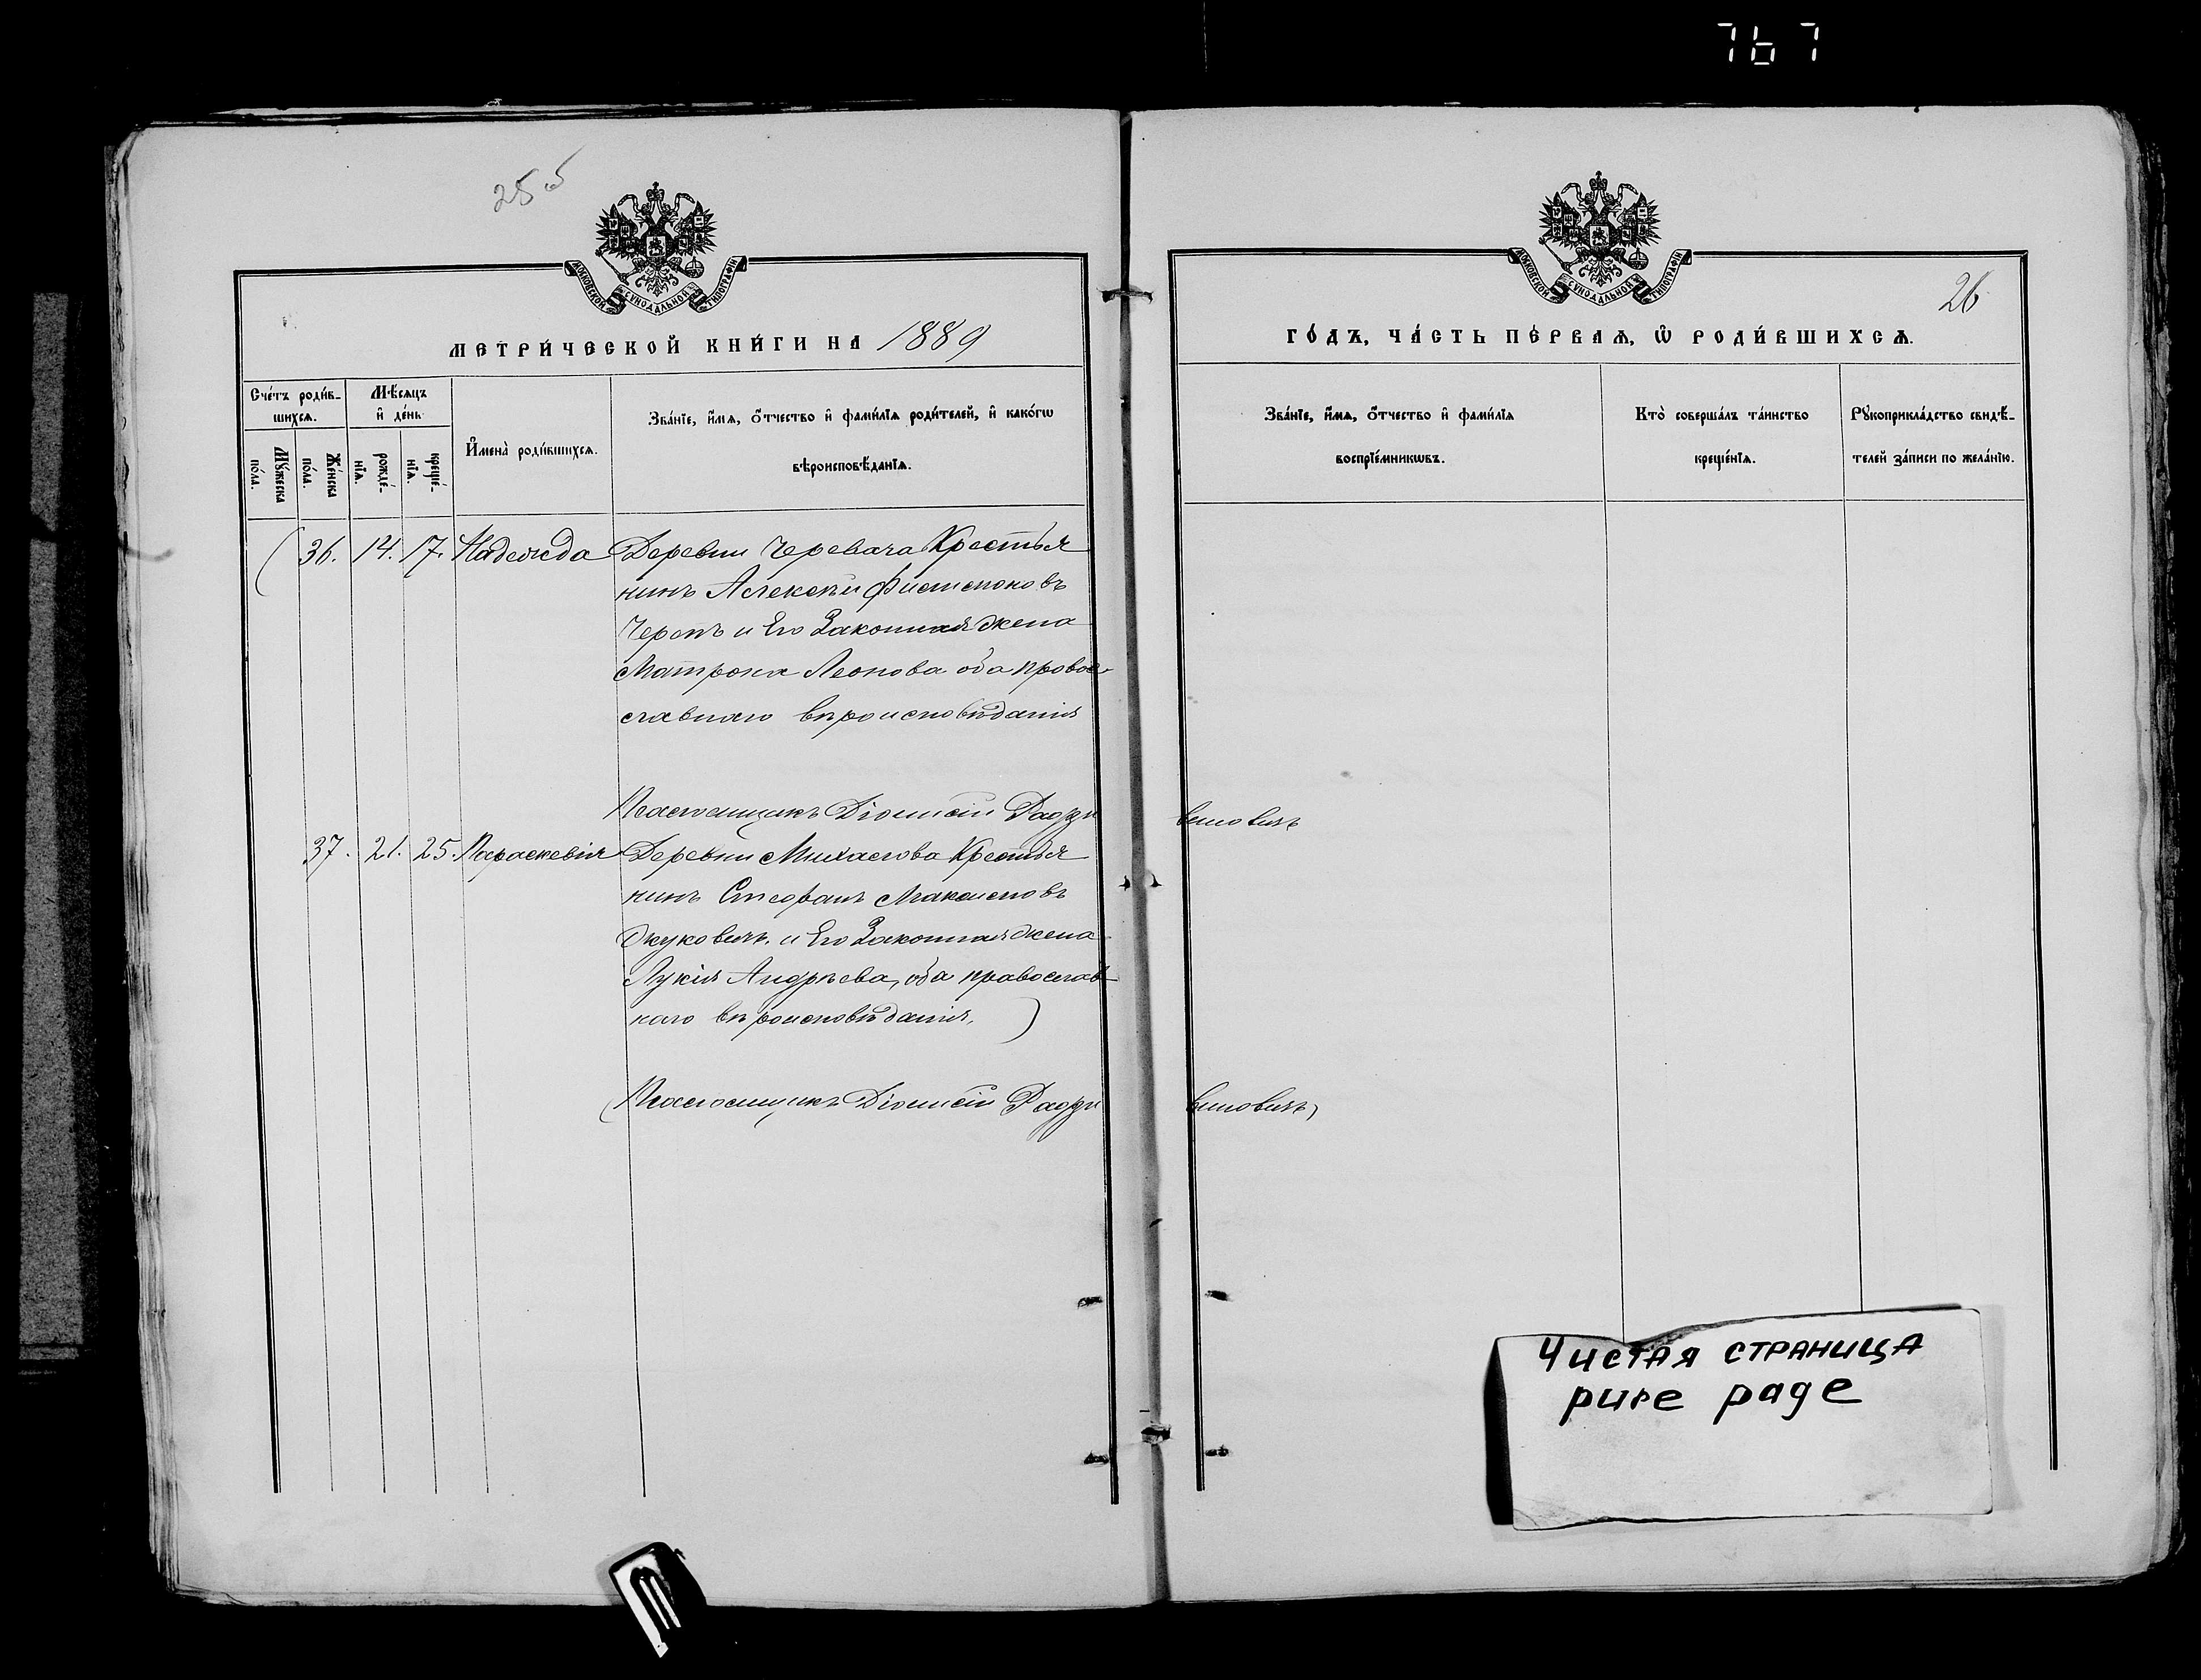 767
25об
МОСКОВСКОЙ СѴНОДАЛЬНОЙ ТИПОГРАФІИ
МЕТРИ́ЧЕСКОЙ КНИ́ГИ НА 1889
Сче́тъ роди́в-
шихсѧ.
Мꙋ́жеска
по́ла.
Же́нска
по́ла.
Мѣ́сѧцъ
и҆ де́нь
рожде́-
нїѧ.
креще́-
нїѧ.
И҆мена̀ роди́вшихсѧ.
Зва́нїе, и҆́мѧ, о҆́тчество и҆ фами́лїѧ роди́телей, и҆ како́гѡ
вѣроисповѣ́данїѧ.
36. 14. 17. Надежда Деревни Черевача Крестья
нинъ Алексѣй Филиповъ
Черепъ и Его Законная жена
Матрона Леонова оба провос
славнаго вѣроисповѣданія
Псаломщикъ Діонисій Радзи
37. 21. 25. Параскевія Деревни Михалова Крестья
нинъ Стефанъ Максимовъ
Жуковичъ. и Его Законная жена
Лукія Андрѣева, оба православ
наго вѣроисповѣданія,
Псаломщикъ Діонисій Радзи
МОСКОВСКОЙ СѴНОДАЛЬНОЙ ТИПОГРАФІИ
26
ГО́ДЪ, ЧА́СТЬ ПЕ́РВАѦ, Ѽ РОДИ́ВШИХСѦ.
Зва́нїе, и҆́мѧ, о҆́тчество и҆ фами́лїѧ
воспрїе́мникѡвъ.
Кто̀ соверша́лъ та́инство
креще́нїѧ.
Рꙋкоприкла́дство свидѣ́-
телей за́писи по жела́нїю.
виловичъ
виловичъ
Чистая страница
pure page